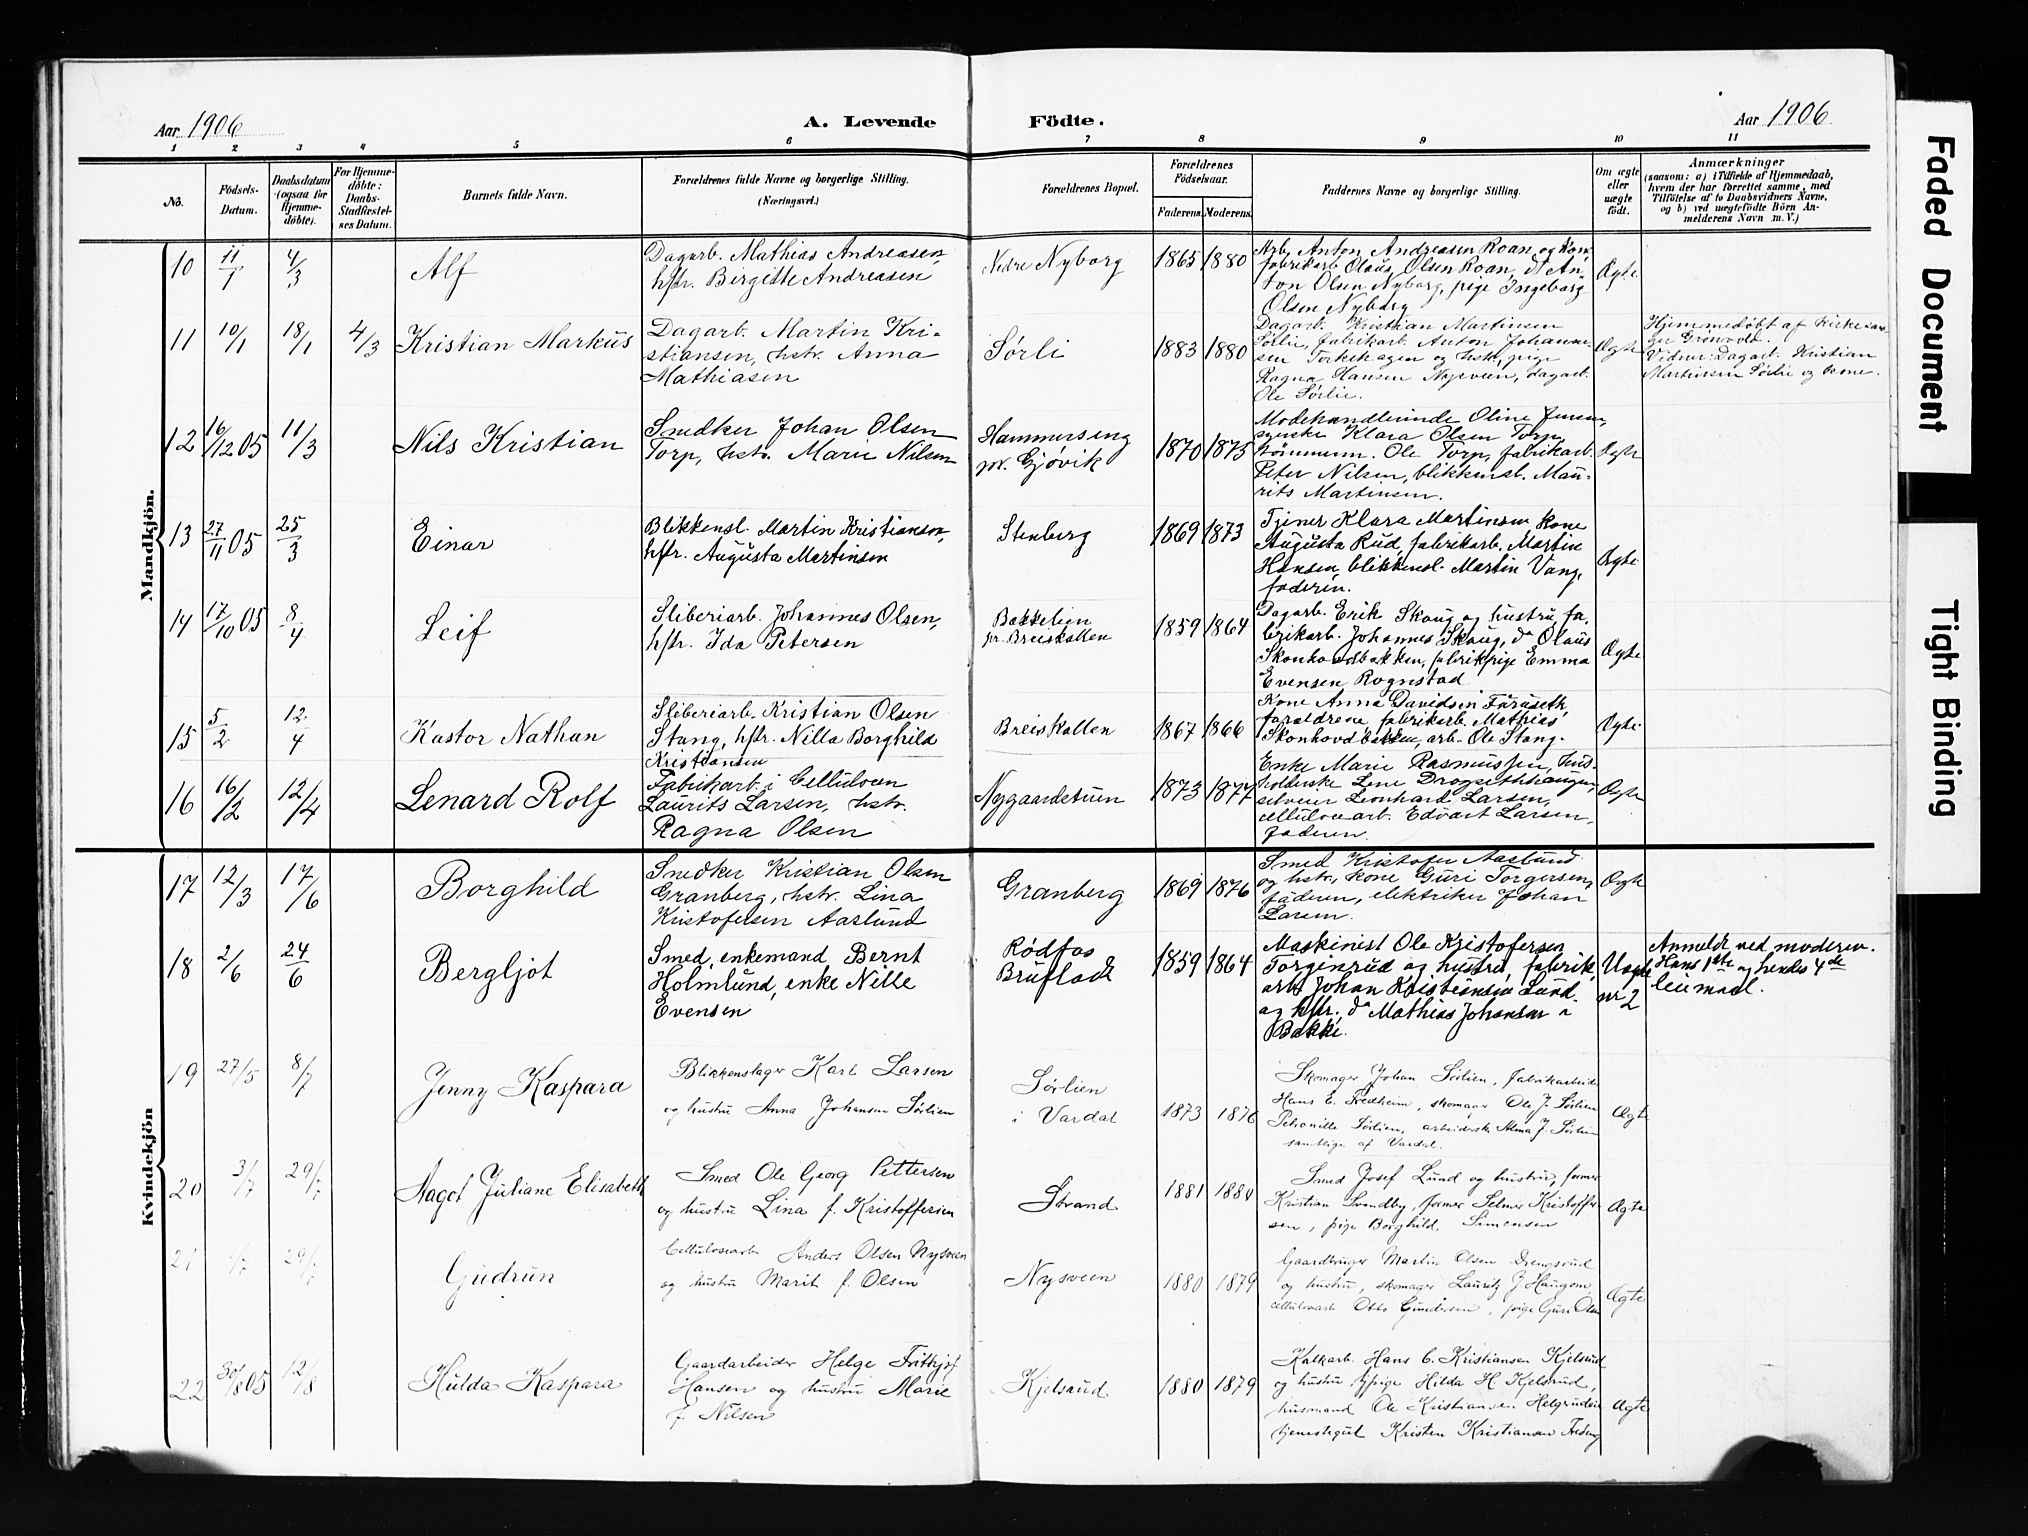 Aar 1906
A. Levende Födte.
Aar 1906
1 2 3 4 5 6 7 8 9 10 11
No.
Födsels-Datum.
Daabsdatum (ogsaa för Hjemme-döbte).
For Hjemme-döbte: Daabs-Stadfæstel-ses Datum.
Barnets fulde Navn.
Forældrenes fulde Navne og borgerlige Stilling.
(Næringsvei.)
Forældrenes Bopæl.
Forældrenes Födselsaar.
Faderens. Moderens.
Faddernes Navne og borgerlige Stilling.
Om ægte eller uægte födt.
Anmærkninger
(saasom: a) i Tilfælde af Hjemmedaab,
hvem der har forrettet samme, med
Tilföielse af to Daabsvidners Navne,
og b) ved uægtefödte Börn An-
melderens Navn m. V.)
Mandkjön.
10 11/1 4/3 Alf
Dagarb. Mathias Andreasen,
hstr. Birgitte Andreasen
Nedre Nyborg 1865 1880
Arb. Anton Andreasen Roan og kone,
fabrikarb Olaus Olsen Roan, do An-
ton Olsen Nyborg, pige Ingeborg
Olsen Nyborg
Ægte
11 10/1 18/1 4/3 Kristian Markus
Dagarb. Martin Kri-
stiansen, hstr. Anna
Mathiasen
Sørli 1883 1880
Dagarb. Kristian Martinsen
Sørlie, fabrikarb. Anton Johanne-
sen Torkehagen og hstr, pige
Ragna Hansen Nysveen, dagarb.
Ole Sørlie.
Ægte
Hjemmedøbt af kirkesan-
ger Grønvold.
Vidner: Dagarb. Kristian
Martinsen Sørlie og kone.
12 16/12 05 11/3 Nils Kristian
Snedker Johan Olsen
Torp, hstr. Marie Nilsen
Hammerseng
pr. Gjøvik 1870 1875
Modehandlerinde Oline Jensen,
syerske Klara Olsen Torp,
tømmerm. Ole Torp, fabrikarb.
Peter Nilsen, blikkensl. Mau-
rits Martinsen.
Ægte
13 27/11 05 25/3 Einar
Blikkensl. Martin Kristiansen,
hstr. Augusta Martinsen
Stenberg 1869 1873
Tjener Klara Martinsen kone
Augusta Rud, fabrikarb. Martin
Hansen, blikkensl. Martin Vang,
faderen.
Ægte
14 17/10 05 8/4 Leif
Sliberiarb. Johannes Olsen,
hstr. Ida Petersen
Bakkelien
pr. Breiskallen 1859 1864
Dagarb. Erik Skaug og hustru, fa-
brikarb. Johannes Skaug, do Olaus
Skonhovdbakken, fabrikpige Emma
Evensen Rognstad
Ægte
15 5/2 12/4 Kastor Nathan
Sliberiarb. Kristian Olsen
Stang, hstr. Nilla Borghild
Kristiansen
Breiskallen 1867 1866
Kone Anna Davidsen Faruseth
forældrene fabrikarb. Mathias
Skonhovdbakken, arb. Ole Stang.
Ægte
16 16/2 12/4 Lenard Rolf
Fabrikarb. i Celluloen
Laurits Larsen, hstr.
Ragna Olsen
Nygaardstuen 1873 1877
Enke Marie Rasmussen, hus-
holderske Lene Drogsethhaugen,
selveier Leonhard Larsen,
celluloarb. Edvart Larsen,
faderen.
Ægte
Kvindekjön
17 12/3 17/6 Borghild
Snedker Kristian Olsen
Granberg, hstr. Lina
Kristofersen Aaslund
Granberg 1869 1876
Smed Kristofer Aaslund
og hstr, kone Guri Torgersen,
faderen, elektriker Johan
Larsen.
Ægte
18 2/6 24/6 Bergljot
Smed, enkemand Bernt
Holmlund, enke Nille
Evensen
Rødfos
Bruflodt 1859 1864
Maskinist Ole Kristofersen
Torginrud og hustru, fabrik
arb Johan Kristiansen Lund
og hstr. do Mathias Johansen i
Bakke.
Uægte
nr 2
Anmeldt ved moderen.
Hans 1ste og hendes 4de
leiermaal.
19 27/5 8/7 Jenny Kaspara
Blikkenslager Karl Larsen
og hustru Anna Johansen Sørlien
Sørlien
i Vardal 1873 1876
Skomager Johan Sørlien, fabrikarbeider
Hans E. Fredheim, skomager Ole J. Sørlien
Petronille Sørlien, arbeiderske Alma J. Sørlien
samtlige af Vardal.
Ægte
20 3/7 29/7 Aagot Juliane Elisabeth
Smed Ole Georg Pettersen
og hustru Lina f. Kristoffersen
Strand 1881 1884
Smed Josef Lund og hustru, former
Kristian Svendby, former Selmer Kristoffer-
sen, pige Borghild Simensen
Ægte
21 1/7 29/7 Gudrun
Cellulosearb Anders Olsen Nysveen
og hustru Marit f. Olsen
Nysveen 1880 1879
Gaardbruger Martin Olsen Drengsrud
og hustru, skomager Lauritz J. Haugom,
cellulosearb Otto Gundersen, pige Guri Olsen
Ægte
22 30/8 05 12/8 Hulda Kaspara
Gaardarbeider Helge Frithjof
Hansen og hustru Marie
f. Nilsen
Kjelsrud 1880 1879
Kalkarb. Hans C. Kristiansen Kjelsrud
og hustru, pige Hilda H. Kjelsrud,
husmand Ole Kristiansen Helgerudeie
tjenestegut Kristen Kristiansen
Ægte
Faded Document
Tight Binding